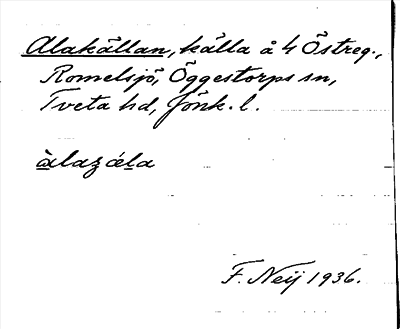 Alakällan, källa å 4 Östreg.,
Romelsjö, Öggestorps sn,
Tveta hd, Jönk. l.
àlaʒ ála
F. Neij 1936.